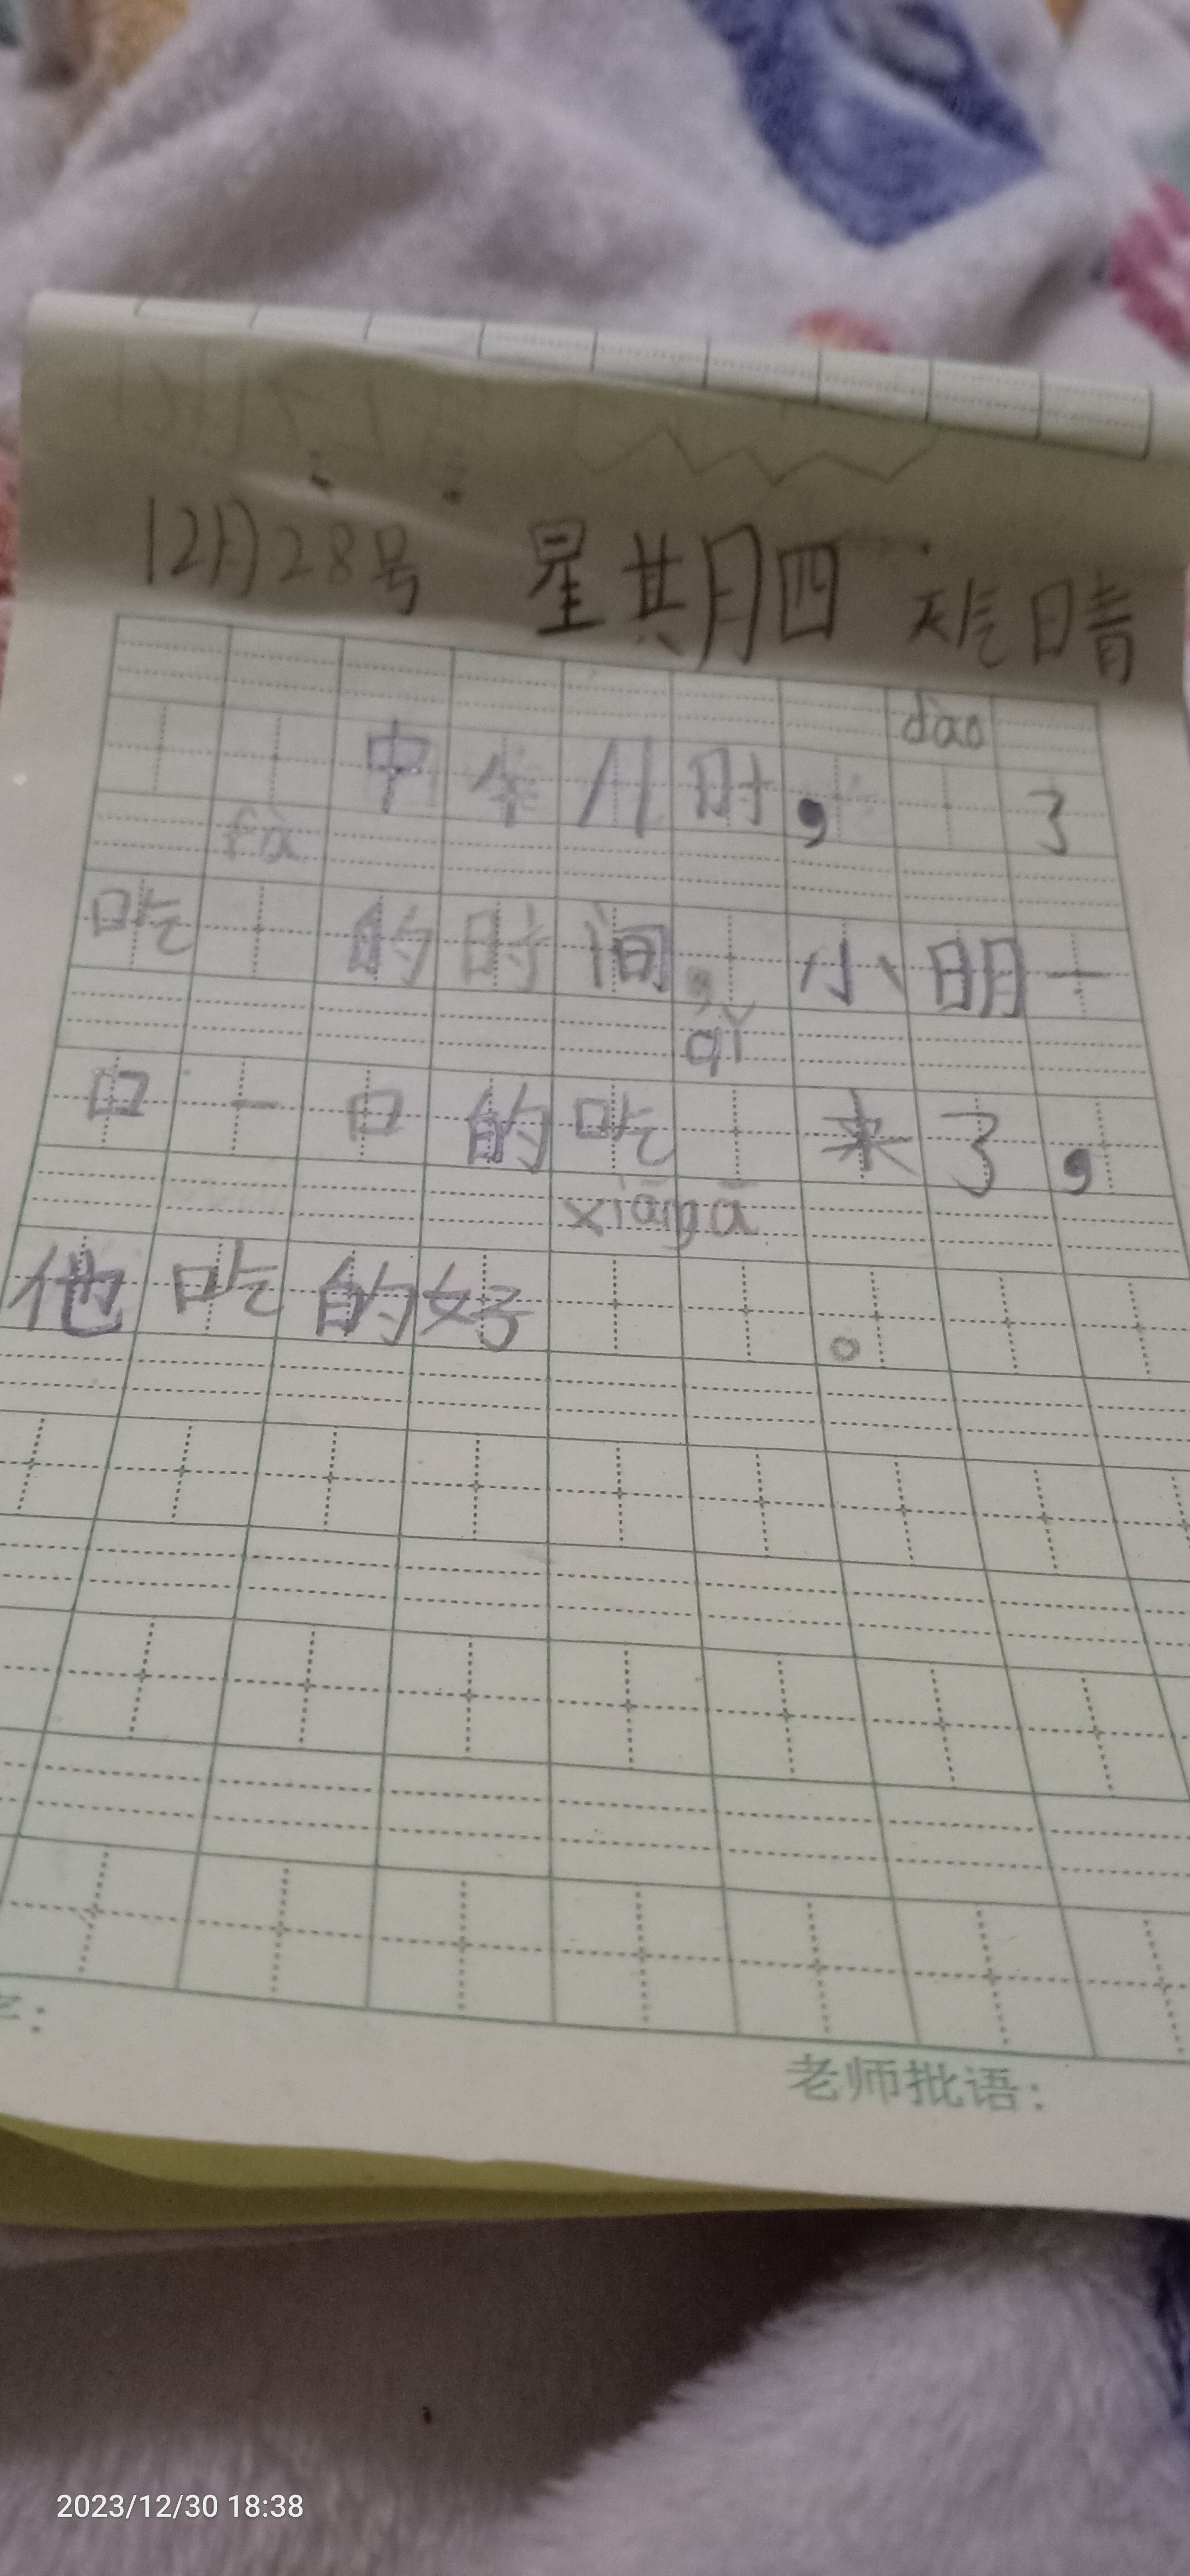 12月28号 星期四 天气晴
dào
中午八时, 了
fà
吃 的时间,小明一
qǐ
口一口的吃 来了,
xiāng a
他吃的好 。
老师批语:
2023/12/30 18:38